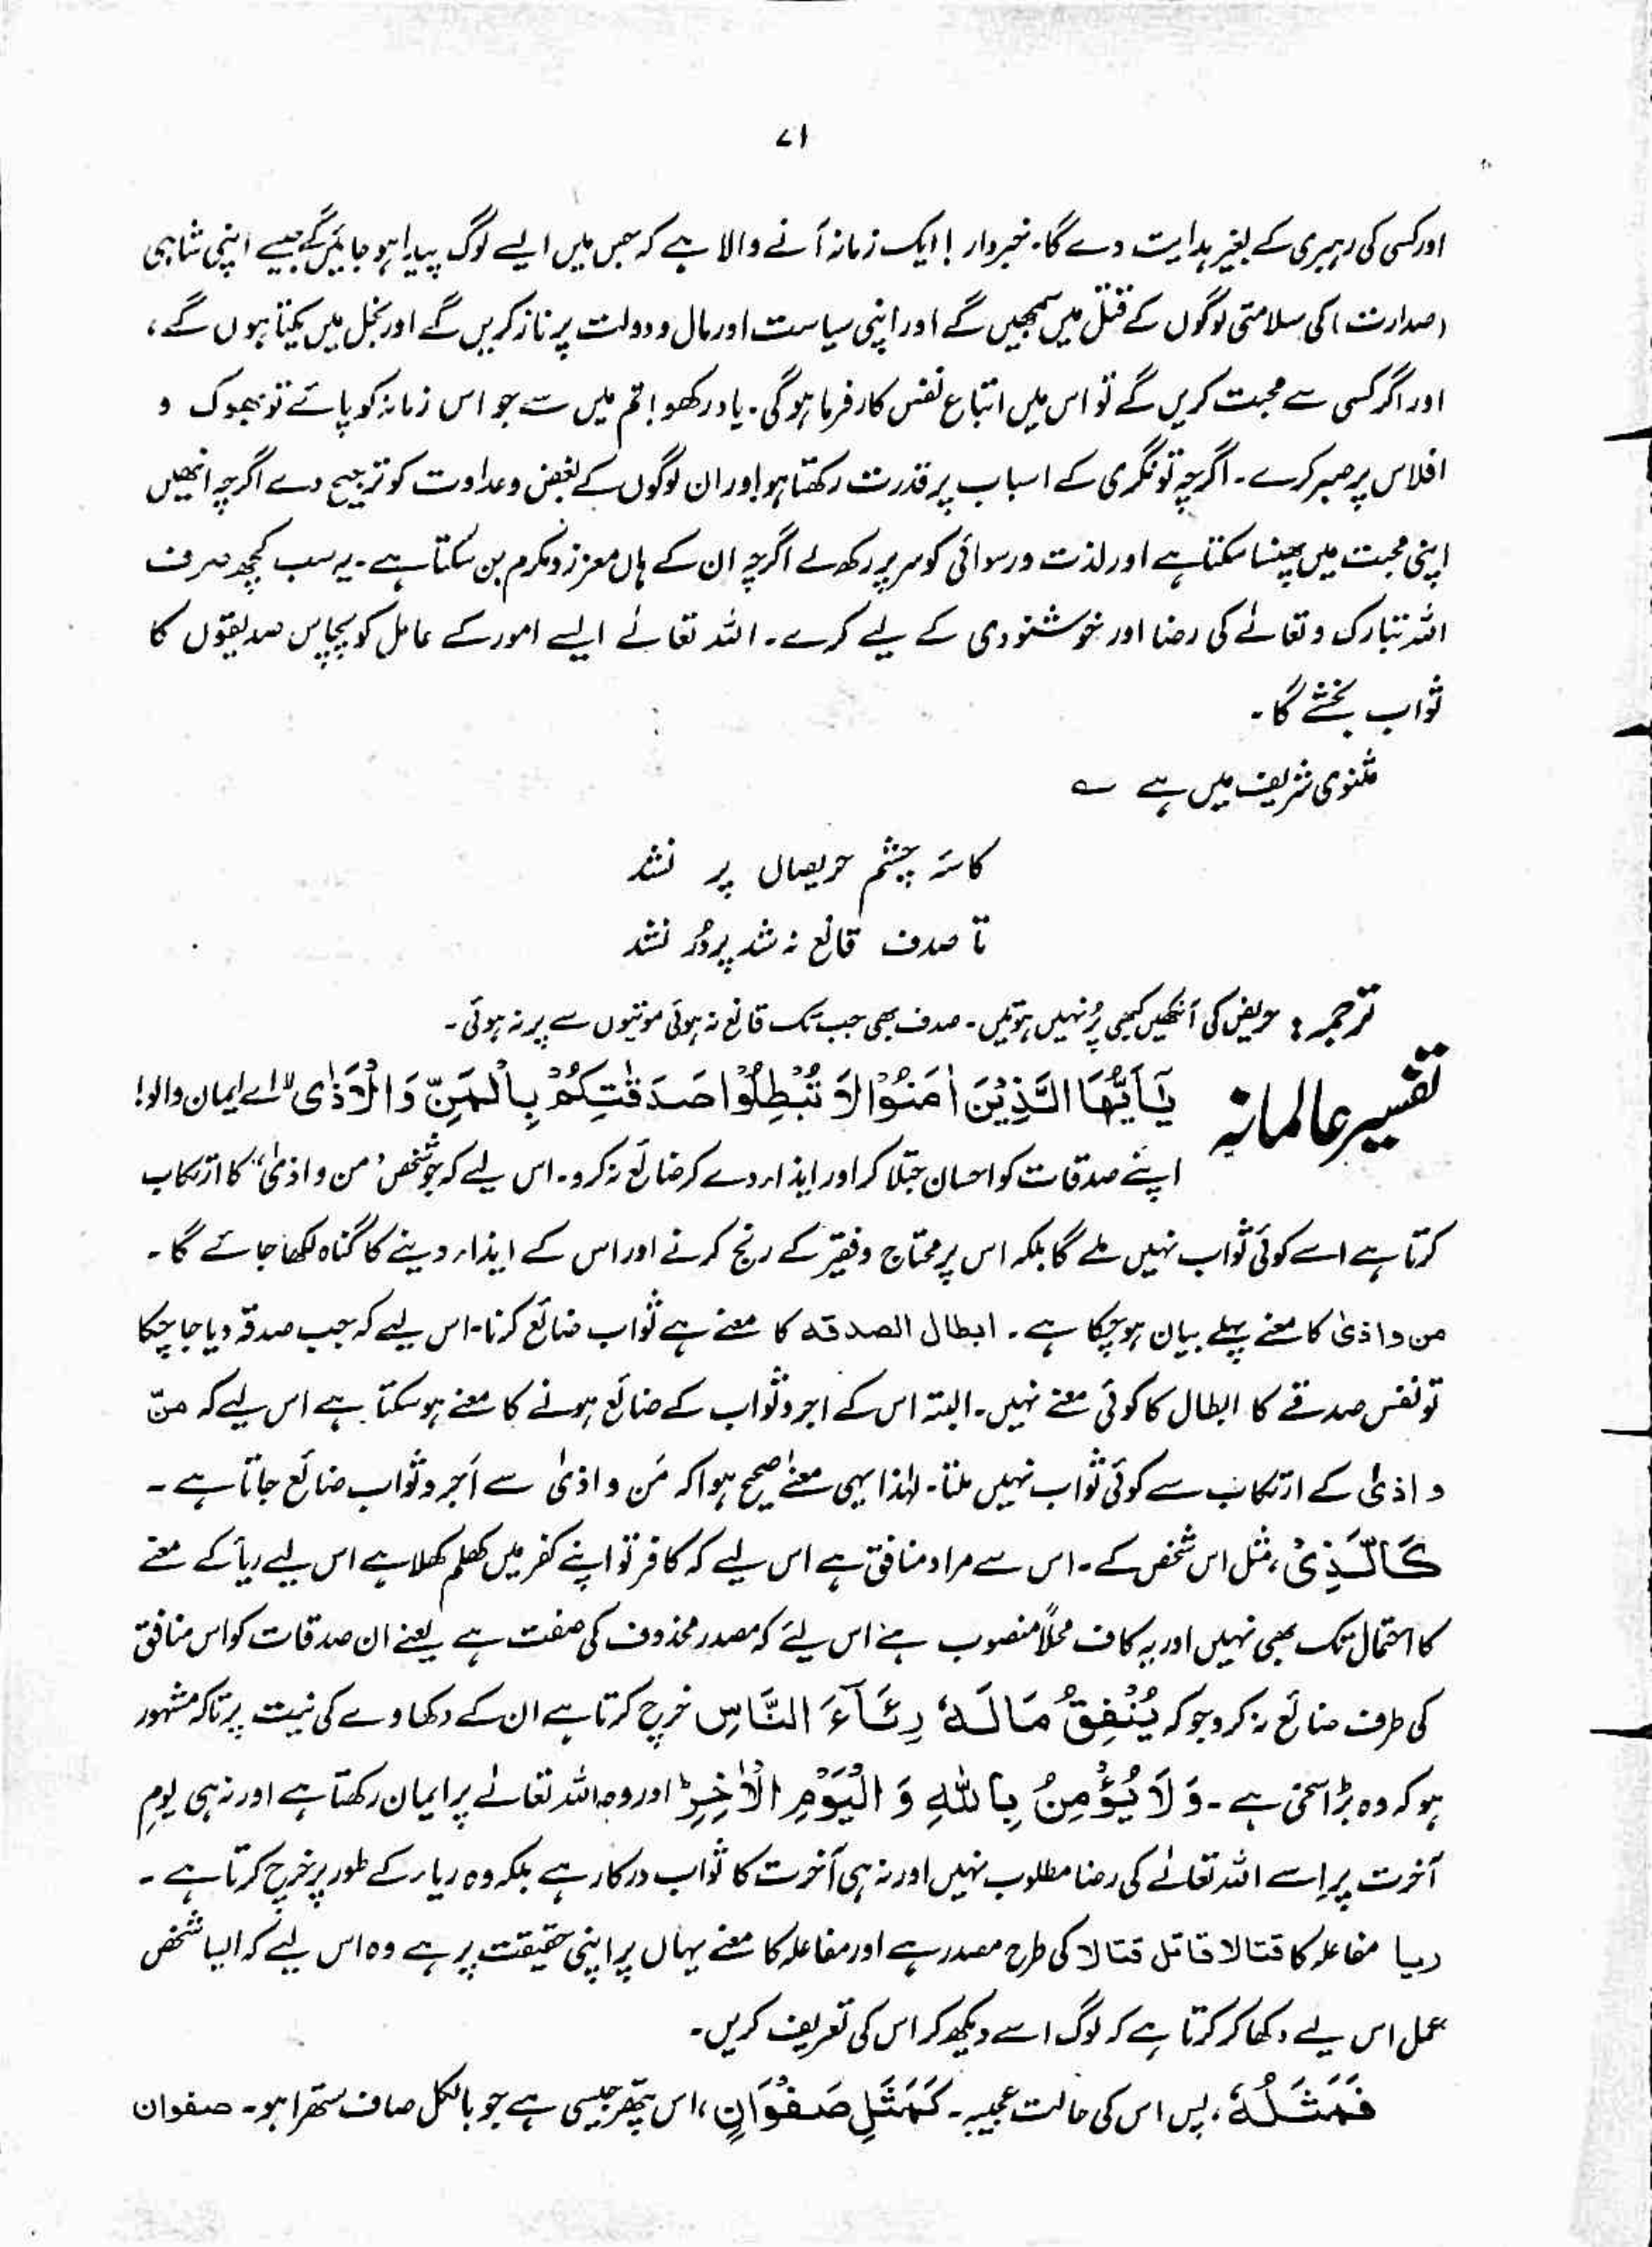 ۷۱
اور کسی کی رہبری کے بغیر ہدایت دے گا۔ خبردار! ایک زمانہ آنے والا ہے کہ جس میں ایسے لوگ پیدا ہو جائیں گے جیسے اپنی شاہی
(صدارت) کی سلامتی لوگوں کے قتل میں سمجھیں گے اور اپنی سیاست اور مال و دولت پر ناز کریں گے اور بخل میں یکتا ہوں گے،
اور اگر کسی سے محبت کریں گے تو اس میں اتباع نفس کارفرما ہوگی۔ یاد رکھو! تم میں سے جو اس زمانہ کو پائے تو بھوک و
افلاس پر صبر کرے۔ اگرچہ تونگری کے اسباب پر قدرت رکھتا ہو اور ان لوگوں کے بغض و عداوت کو ترجیح دے اگرچہ انھیں
اپنی محبت میں پھنسا سکتا ہے اور لذت و رسوائی کو سر پر رکھ لے اگرچہ ان کے ہاں معزز و مکرم بن سکتا ہے۔ یہ سب کچھ صرف
اللہ تبارک و تعالےٰ کی رضا اور خوشنودی کے لیے کرے۔ اللہ تعالےٰ ایسے امور کے عامل کو پچاس صدیقوں کا
ثواب بخشے گا۔
مثنوی شریف میں ہے ؎
کاسۂ چشم حریصاں پر نشد
تا صدف قانع نہ شد پر دُر نشد
ترجمہ: حریض کی آنکھیں کبھی پُر نہیں ہوتیں۔ صدف بھی جب تک قانع نہ ہوئی موتیوں سے پر نہ ہوئی۔
تفسیر عالمانہ یٰٓاَیُّھَا الَّذِیْنَ اٰمَنُوْا لَا تُبْطِلُوْا صَدَقٰتِکُمْ بِالْمَنِّ وَالْاَذٰی ۙ اے ایمان والو!
اپنے صدقات کو احسان جتلا کر اور ایذاء دے کر ضائع نہ کرو۔ اس لیے کہ جو شخص "من و اذیٰ" کا ارتکاب
کرتا ہے اسے کوئی ثواب نہیں ملے گا بلکہ اس پر محتاج و فقیر کے رنج کرنے اور اس کے ایذاء دینے کا گناہ لکھا جائے گا۔
من و اذیٰ کا معنے پہلے بیان ہو چکا ہے۔ ابطال الصدقہ کا معنے ہے ثواب ضائع کرنا۔ اس لیے کہ جب صدقہ دیا جا چکا
تو نفس صدقے کا ابطال کا کوئی معنے نہیں۔ البتہ اس کے اجر و ثواب کے ضائع ہونے کا معنے ہو سکتا ہے اس لیے کہ منّ
و اذیٰ کے ارتکاب سے کوئی ثواب نہیں ملتا۔ لہٰذا یہی معنےٰ صحیح ہوا کہ مَن و اذیٰ سے اَجر و ثواب ضائع جاتا ہے۔
کَالَّذِیْ، مثل اس شخص کے۔ اس سے مراد منافق ہے اس لیے کہ کافر تو اپنے کفر میں کھلم کھلا ہے اس لیے ریأ کے معنے
کا احتمال تک بھی نہیں اور یہ کاف محلاً منصوب ہے اس لئے کہ مصدر محذوف کی صفت ہے یعنے ان صدقات کو اس منافق
کی طرف ضائع نہ کرو جو کہ یُنْفِقُ مَالَہٗ رِئَآءَ النَّاسِ خرچ کرتا ہے ان کے دکھاوے کی نیت پر تاکہ مشہور
ہو کہ وہ بڑا سخی ہے۔ وَلَا یُؤْمِنُ بِاللہِ وَ الْیَوْمِ الْاٰخِرِ ؕ اور وہ اللہ تعالےٰ پر ایمان رکھتا ہے اور نہ ہی یومِ
آخرت پر اِسے اللہ تعالےٰ کی رضا مطلوب نہیں اور نہ ہی آخرت کا ثواب درکار ہے بلکہ وہ ریاء کے طور پر خرچ کرتا ہے۔
ریا مفاعلہ کا قتالا قاتل قتالا کی طرح مصدر ہے اور مفاعلہ کا معنے یہاں پر اپنی حقیقت پر ہے وہ اس لیے کہ ایسا شخص
عمل اس لیے دکھا کر کرتا ہے کہ لوگ اسے دیکھ کر اس کی تعریف کریں۔
فَمَثَلُہٗ، پس اس کی حالت عجیبہ۔ کَمَثَلِ صَفْوَانٍ، اس پتھر جیسی ہے جو بالکل صاف ستھرا ہو۔ صفوان